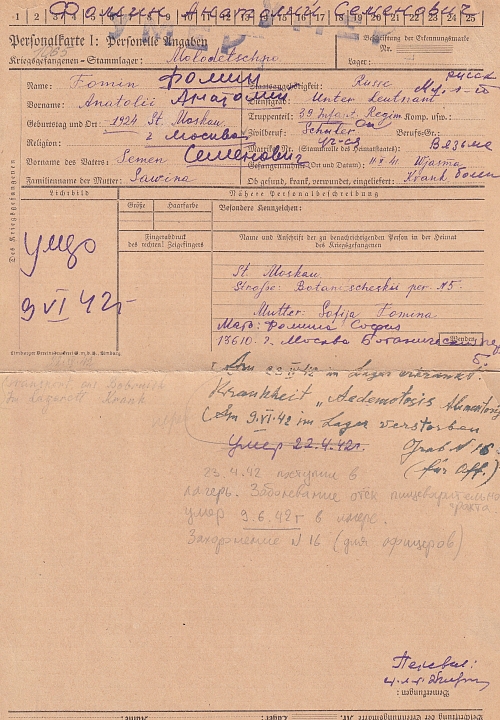 1 2 3 4 5 6 7 8 9 10 11 12 13 14 15 16 17 18 19 20 21 22 23 24 25
Фомин Анатолий Семенович
Personalkarte I: Personelle Angaben
Beschriftung der Erkennungsmarke
Nr.
Kriegsgefangenen-Stammlager: Molodetschno
Lager:
Name: Fomin Фомин
Staatsangehörigkeit: Russe русск
Vorname: Anatolii Анатолий
Dienstgrad: Unter Leutnant Мл. л-т
Truppenteil: 39 Infant. Regim Komp. usw.:
Geburtstag und Ort: 1924 St. Moskau
г Москва
Zivilberuf: Schuler Berufs-Gr.:
уч-ся
Religion:
Matrikel Nr. (Stammrolle des Heimatstaates):
Вязьма
Vorname des Vaters: Semen Семенович
Gefangennahme (Ort und Datum): 11 X 41 Wjasma
Familienname der Mutter: Sawina
Ob gesund, krank, verwundet, eingeliefert: Krank болен
Des Kriegsgefangenen
Lichtbild
Nähere Personalbeschreibung
Größe
Haarfarbe
Besondere Kennzeichen:
Fingerabdruck
des rechten! Zeigefingers
Name und Anschrift der zu benachrichtigenden Person in der Heimat
des Kriegsgefangenen
9 VI 42 г
St. Moskau
Straße: Botanischeskii per N5.
Mutter: Sofija Fomina
Мать: Фомина София
г. Москва Ботанический пер
5
Wenden
Am in Lager erkrankt.
Krankheit „Aedemotosis
(Am 9.VI.42 im Lager verstorben
Grab N 16
(für Off.)
Умер 22.4.42г.
23.4.42 поступил в
лагерь. Заболевание отек пищеварительного
тракта
умер 9.6.42г в лагере.
Захоронение N 16 (для офицеров)
Перевел:
Bemerkungen: